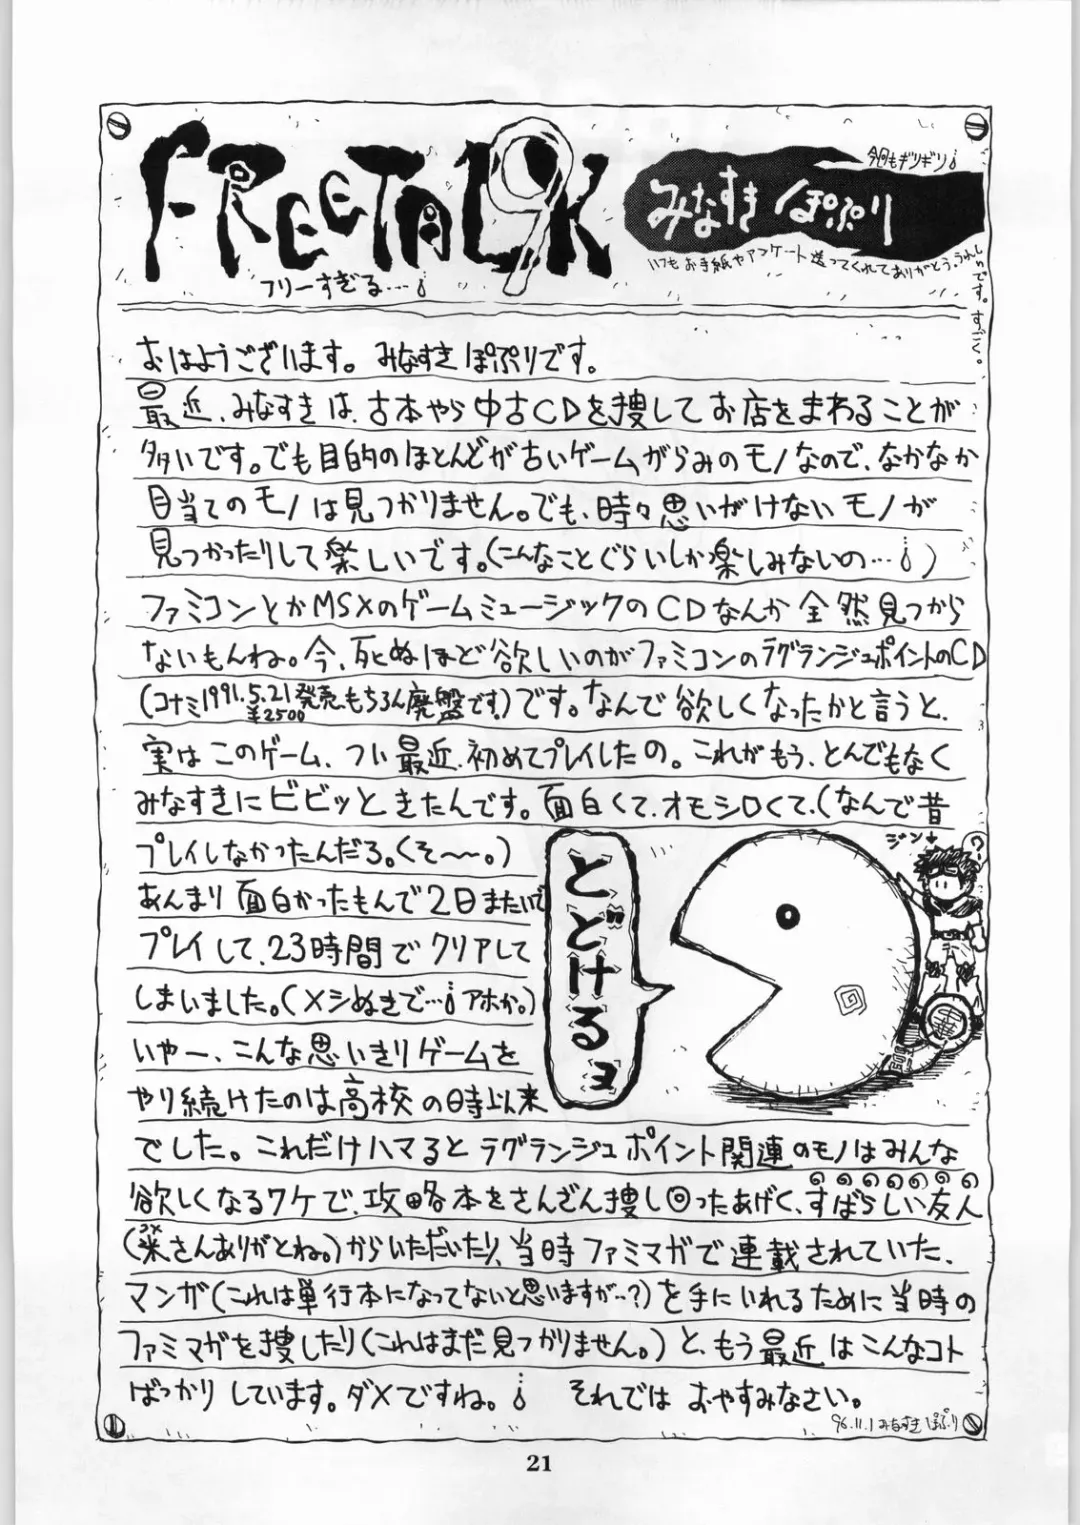 FREETALK 9
フリーすぎる…
今日もギリギリ
みなすき ぽぷり
いつもお手紙やアンケート送ってくれてありがとう。うれしいです。すごく。
おはようございます。みなすき ぽぷりです。
最近、みなすきは、古本やら中古CDを捜してお店をまわることが
多いです。でも目的のほとんどが古いゲームがらみのモノなので、なかなか
目当てのモノは見つかりません。でも、時々思いがけないモノが
見つかったりして楽しいです。(こんなことぐらいしか楽しみないの…)
ファミコンとかMSXのゲームミュージックのCDなんか全然見つから
ないもんね。今、死ぬほど欲しいのがファミコンのラグランジュポイントのCD
(コナミ1991.5.21発売、もちろん廃盤です。)です。なんで欲しくなったかと言うと、
¥2500
実はこのゲーム、つい最近、初めてプレイしたの。これがもう、とんでもなく
みなすきにビビッときたんです。面白くて、オモシロくて、(なんで昔
プレイしなかったんだろ。くそ〜〜。)
あんまり面白かったもんで2日またいで
プレイして、23時間でクリアして
しまいました。(メシぬきで…アホか。)
いやー、こんな思いきりゲームを
やり続けたのは高校の時以来
でした。これだけハマるとラグランジュポイント関連のモノはみんな
欲しくなるワケで、攻略本をさんざん捜し回ったあげく、すばらしい友人
(米さんありがとね。)からいただいたり、当時ファミマガで連載されていた、
コメ
マンガ(これは単行本になってないと思いますが…?)を手にいれるために当時の
ファミマガを捜したり(これはまだ見つかりません。)と、もう最近はこんなコト
ばっかりしています。ダメですね。 それでは おやすみなさい。
とどけるヨ
ジンナ
中華
96.11.1 みなすき ぽぷり
21